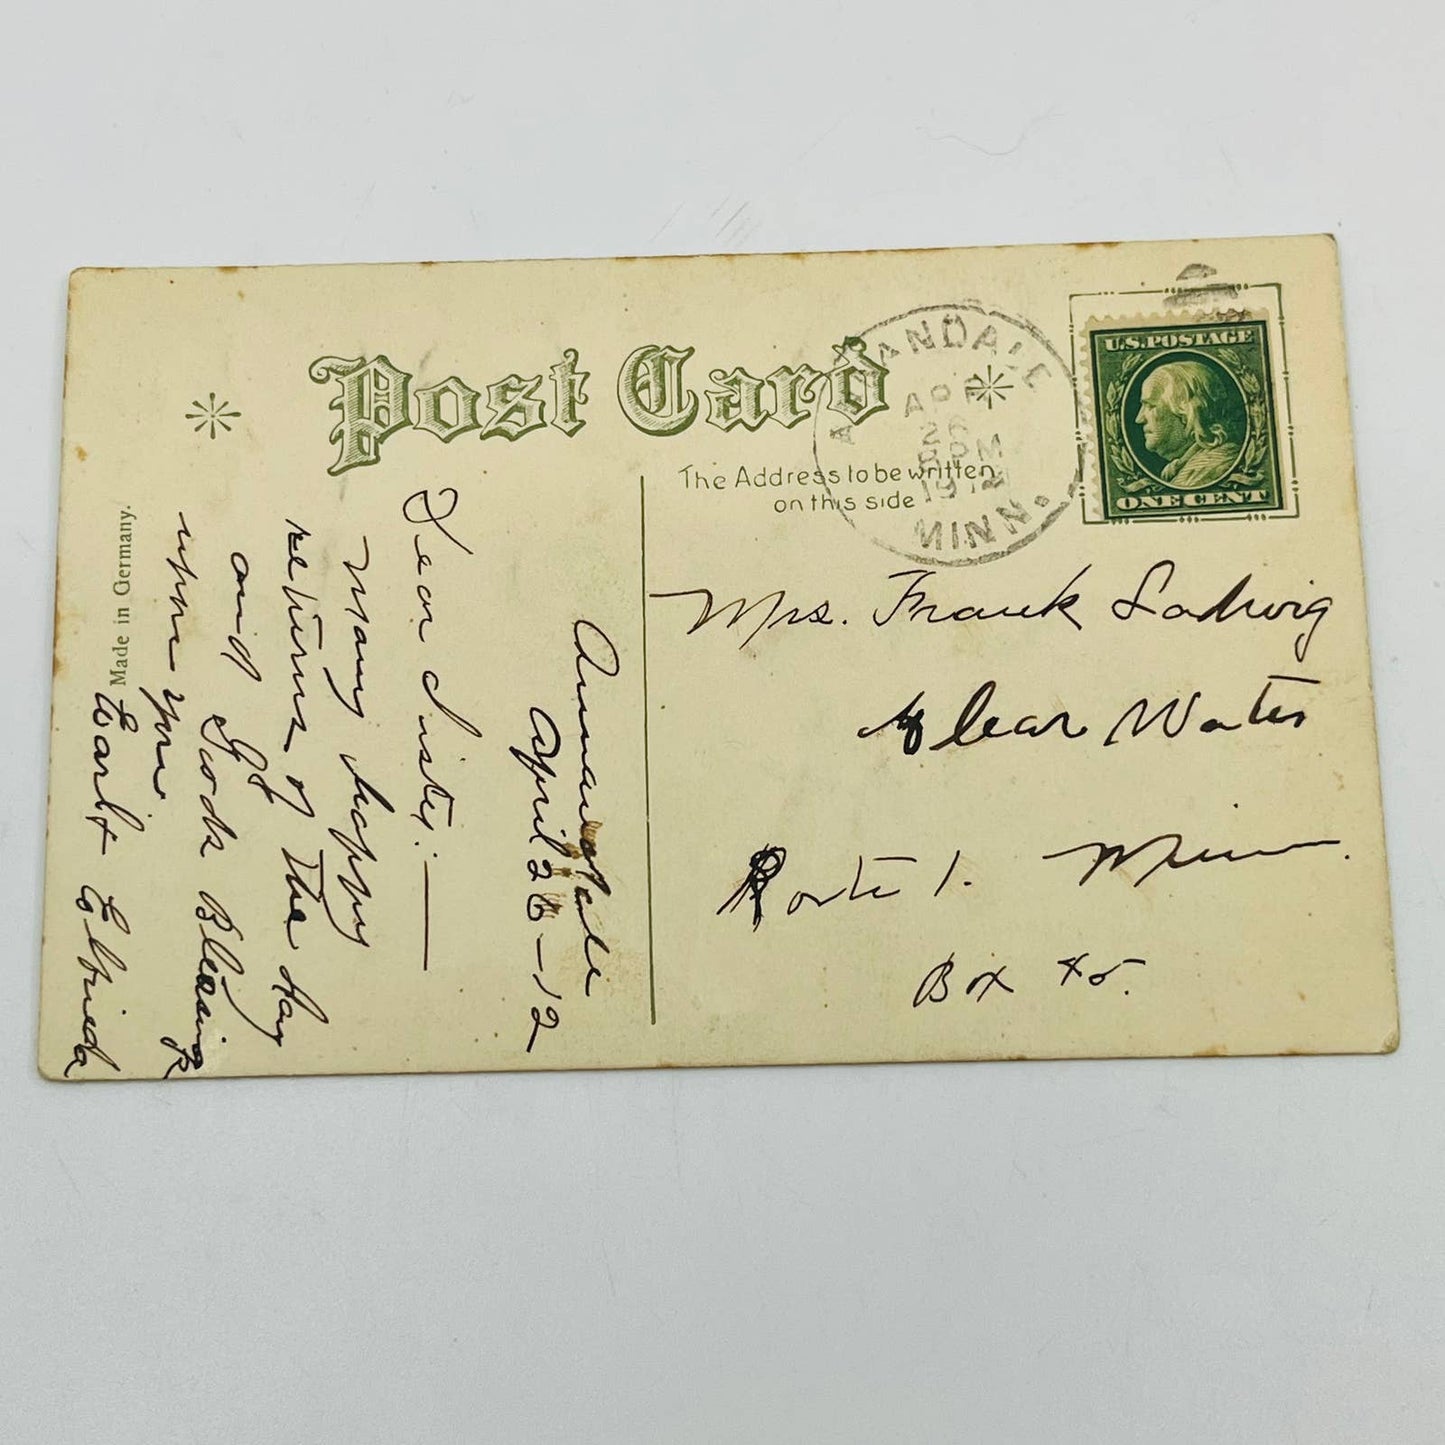 Post Card
The Address to be written
on this side
Made in Germany.
ANNANDALE
APR
26
PM
1912
MINN.
U.S. POSTAGE
ONE CENT
Mrs. Frank Ladwig
Clear Water
Route 1. Minn.
Box 45.
Annandale
April 26-12
Dear Sister:—
Many happy
returns of the day
and Gods Blessing
upon you
Earl & Elfrieda